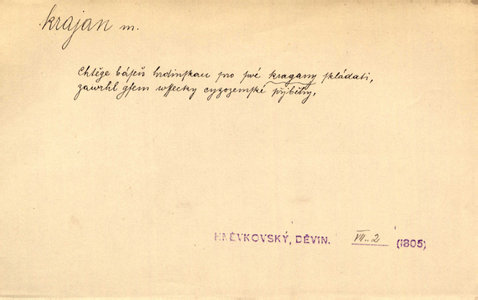 krajan m.
Chtěge báseň hrdinskau pro své kragany skládati,
zawrhl gsem wssecky cyzozemské přjběhy,
HNĚVKOVSKÝ, DĚVIN. VII. 2 (1805)